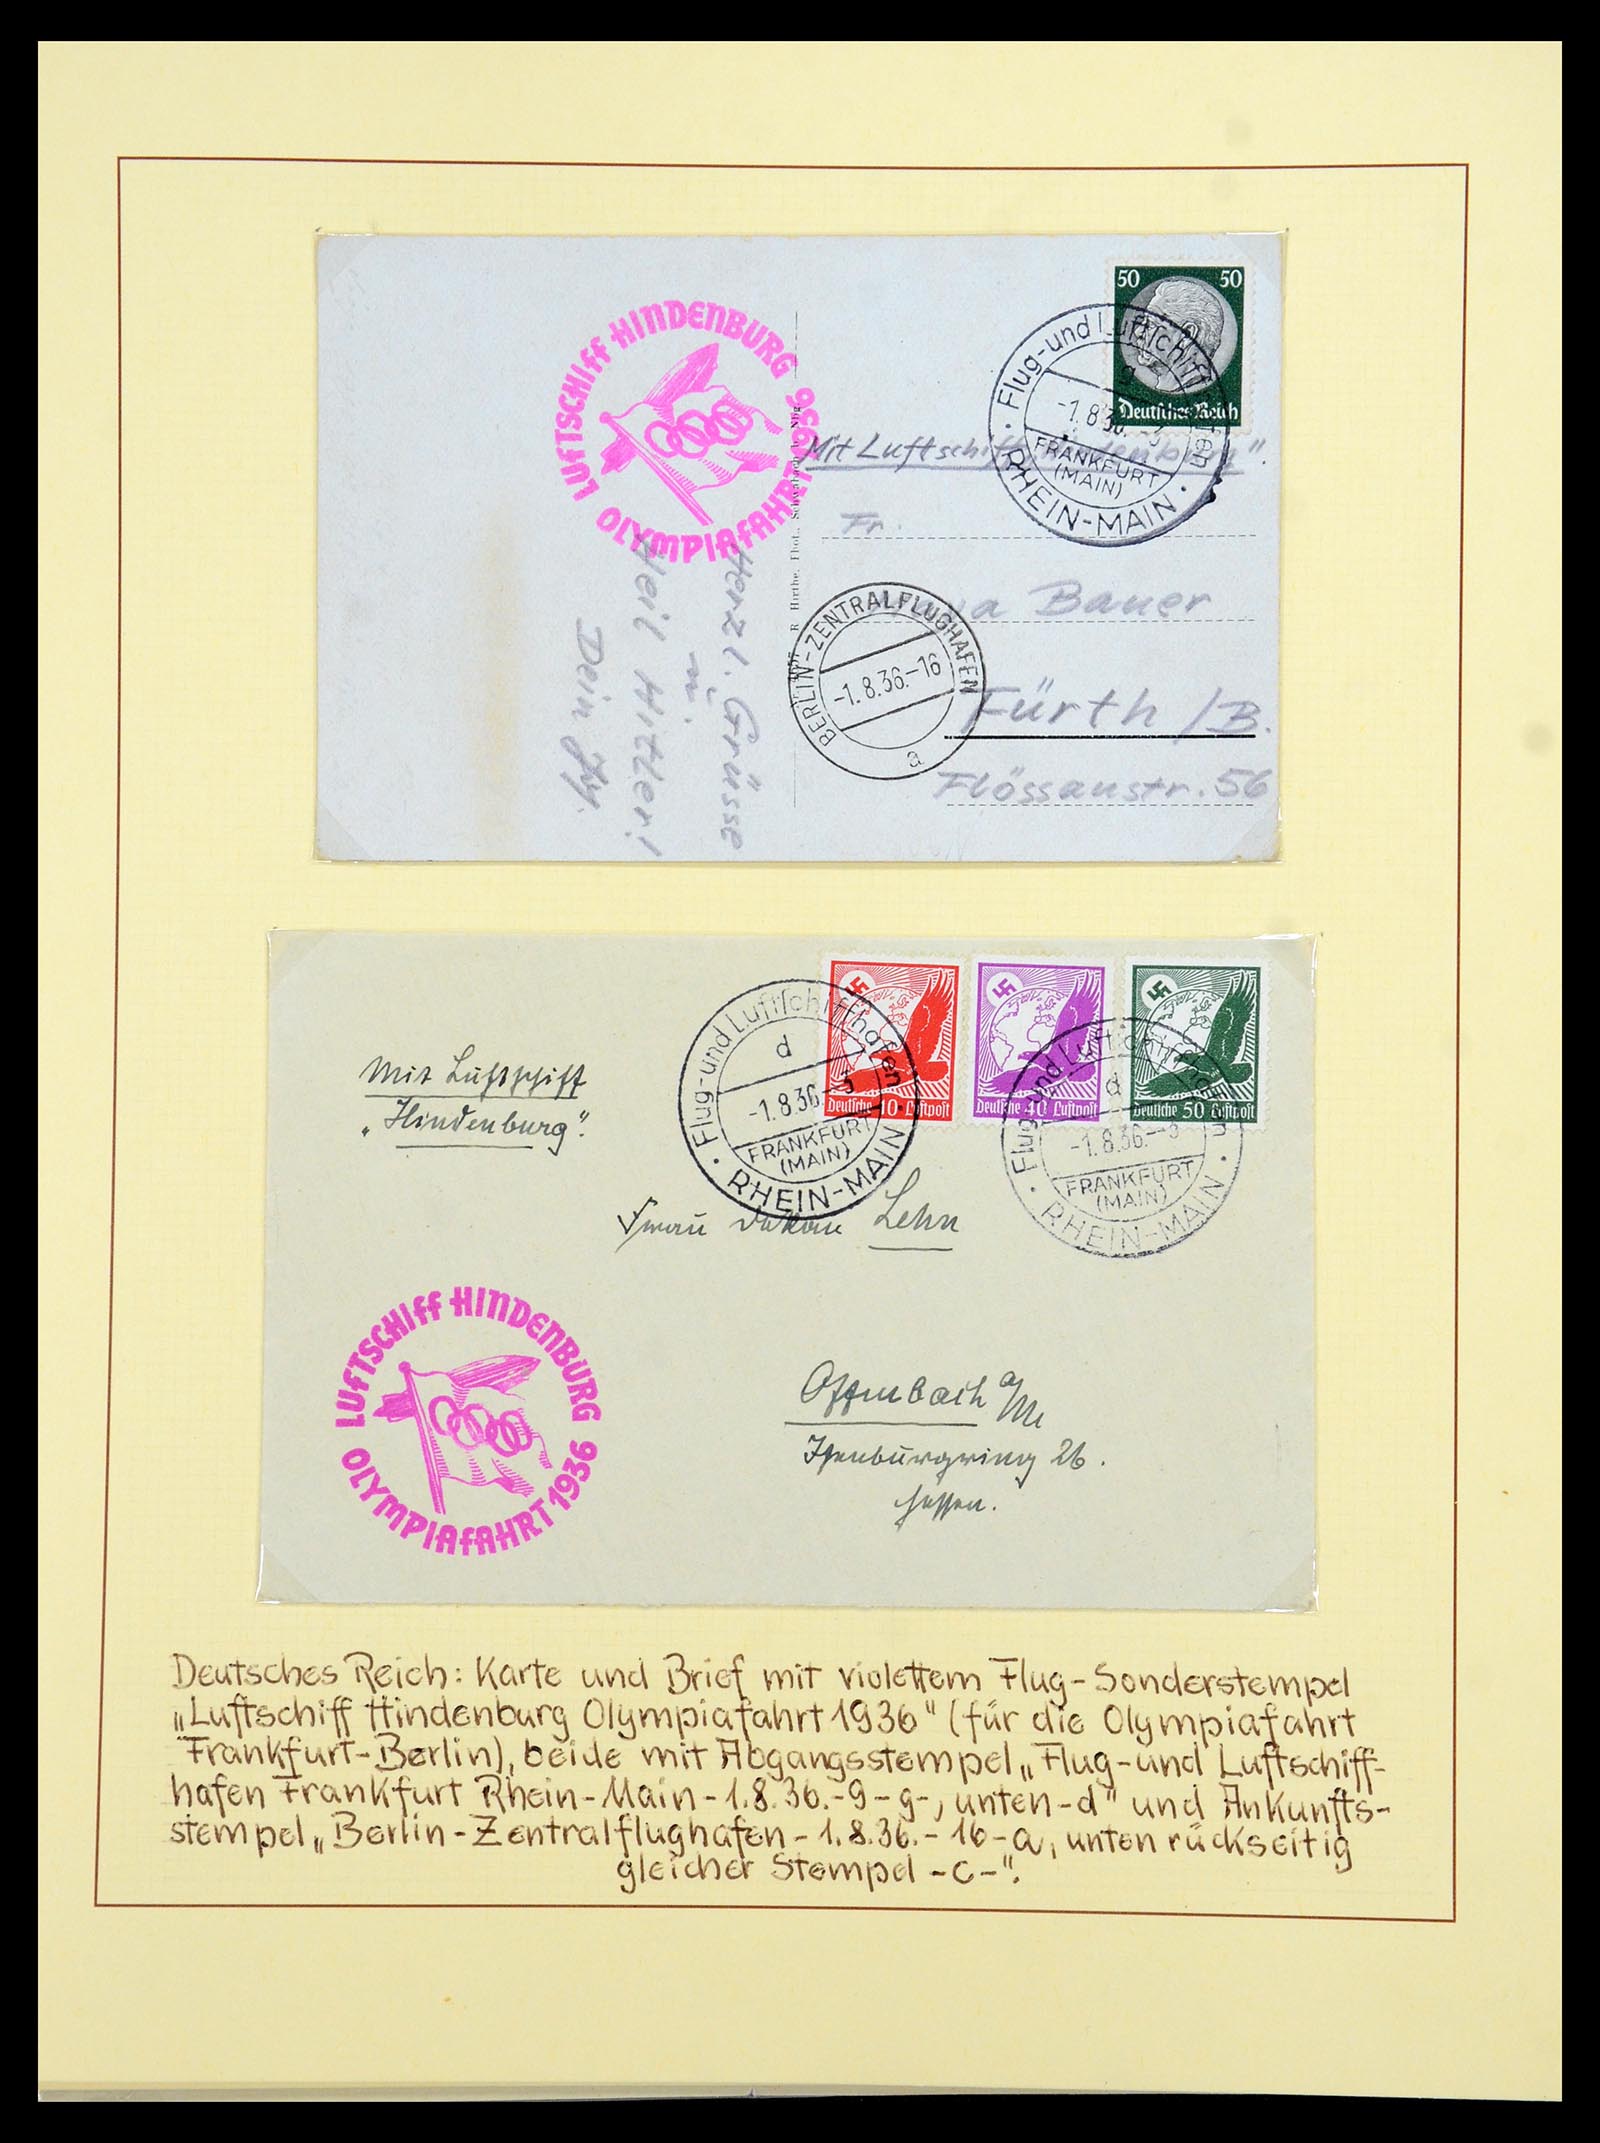 LUFTSCHIFF HINDENBURG
OLYMPIAFAHRT 1936
50 50
Deutsches Reich
Flug- und Luftschiffhafen
g
-1.8.36.-
FRANKFURT
(MAIN)
RHEIN-MAIN
Mit Luftschiff "Hindenburg".
Fr.
Bauer
Fürth / B.
Flössaustr. 56
BERLIN-ZENTRALFLUGHAFEN
-1.8.36.-16
a
Herzl. Grüsse
u.
Heil Hitler!
Dein
Mit Luftschiff
"Hindenburg".
Deutsche 10 Luftpost
Deutsche 40 Luftpost
Deutsche 50 Luftpost
Flug- und Luftschiffhafen
d
-1.8.36.-
FRANKFURT
(MAIN)
RHEIN-MAIN
Flug- und Luftschiffhafen
d
-1.8.36.-
FRANKFURT
(MAIN)
RHEIN-MAIN
Frau Lehn
Offenbach a/M
Isenburgring 26.
Hessen.
LUFTSCHIFF HINDENBURG
OLYMPIAFAHRT 1936
Deutsches Reich: Karte und Brief mit violettem Flug-Sonderstempel
„Luftschiff Hindenburg Olympiafahrt 1936" (für die Olympiafahrt
Frankfurt-Berlin), beide mit Abgangsstempel „Flug-und Luftschiff-
hafen Frankfurt Rhein-Main-1.8.36.-9-g-, unten-d" und Ankunfts-
stempel „Berlin-Zentralflughafen-1.8.36.-16-a, unten rückseitig
gleicher Stempel -c-".